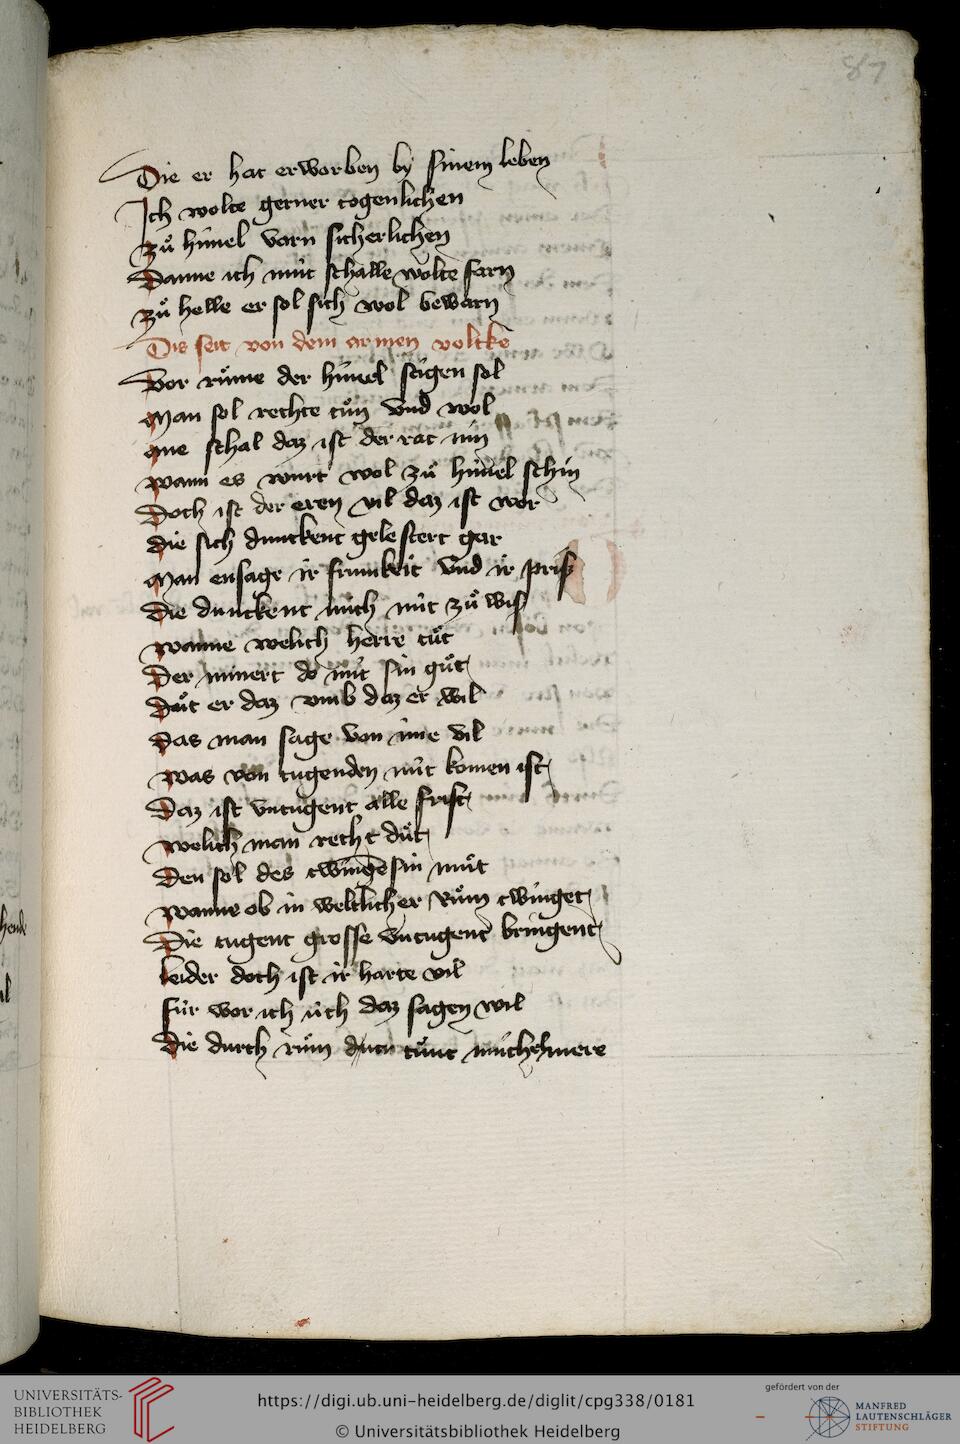 87
Die er hat erworben by sinem leben
Ich wolte gerner togenlichen
zuͦ himel varn sicherlichen
Danne ich mit schalle wolte farn
zuͦ helle er sol sich wol bewarn
Dis seit von dem armen voltke
Vor ruͦme der himel stigen sol
Man sol rechte tuͦn vnd wol
one schal daz ist der rat min
wann es wurt wol zuͦ himel schin
Doch ist der eren vil daz ist wor
die sich dunckent gelestert gar
Man ensage ir frumkeit vnd ir priß
die dunckent mich nit zuͦ wis
wanne welich herre tuͦt
Der minert do mit sin guͦt
duͦt er daz vmb daz er wil
Das man sage von ime vil
was von tugenden nit komen ist
Daz ist vntugent alle frist
welich man recht duͦt
Den sol des twingen sin muͦt
wanne ob in weltlicher ruͦm twinget
Die tugent grosse vntugent bringent
leider doch ist ir harte vil
für wor ich üch daz sagen wil
die durch ruͦm tuͦnt
hende
al
UNIVERSITÄTS-
BIBLIOTHEK
HEIDELBERG
https://digi.ub.uni-heidelberg.de/diglit/cpg338/0181
© Universitätsbibliothek Heidelberg
gefördert von der
MANFRED
LAUTENSCHLÄGER
STIFTUNG